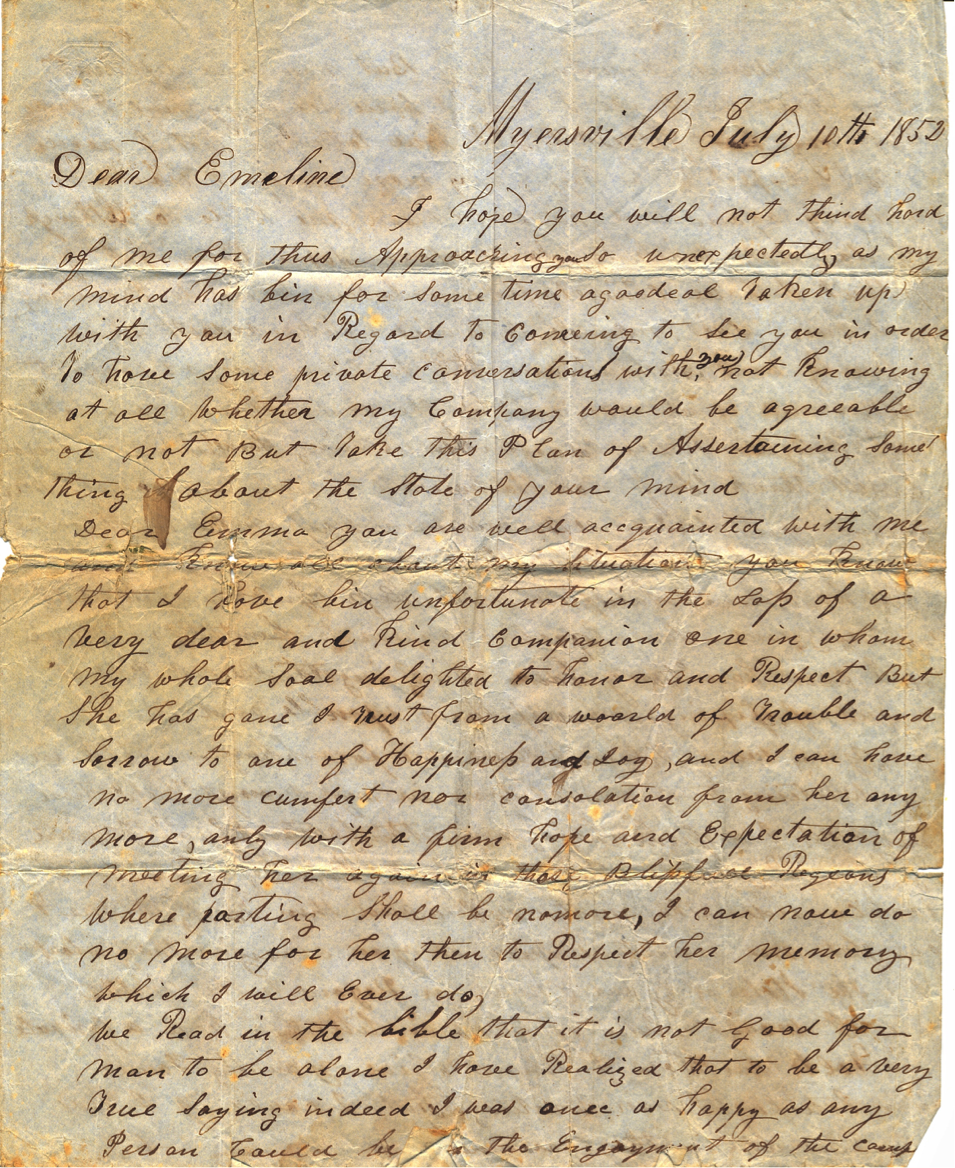 Myersville July 10th 1852
Dear Emeline
I hope you will not thind hard
of me for thus Approaching you so unexpectedly, as my
mind has bin for some time agoodeal Taken up
with you in Regard to Comeing to See you in order
To have some private conversations with, you not Knowing
at all Whether my Company would be agreeable
or not But Take this Plan of Assertaining Some
thing about the State of your mind
Dear Emma you are well accquainted with me
and Know all about my Situation you Know
that I have bin unfortunate in the Loss of a
very dear and Kind Companion one in whom
my whole Soal delighted to honor and Respect But
She has gone I Trust from a woarld of Trouble and
Sorrow to one of Happiness and Joy, and I can have
no more cumfert nor consolation from her any
more, only with a firm hope and Expectation of
meeting her again in those Blissful Regeons
Where parting Shall be nomore, I can now do
no More for her then to Respect her memory
which I will Ever do,
We Read in the bible that it is not Good for
man to be alone I have Realized that to be a very
True Saying indeed I was once as happy as any
Person Could be the Engoyment of the comp